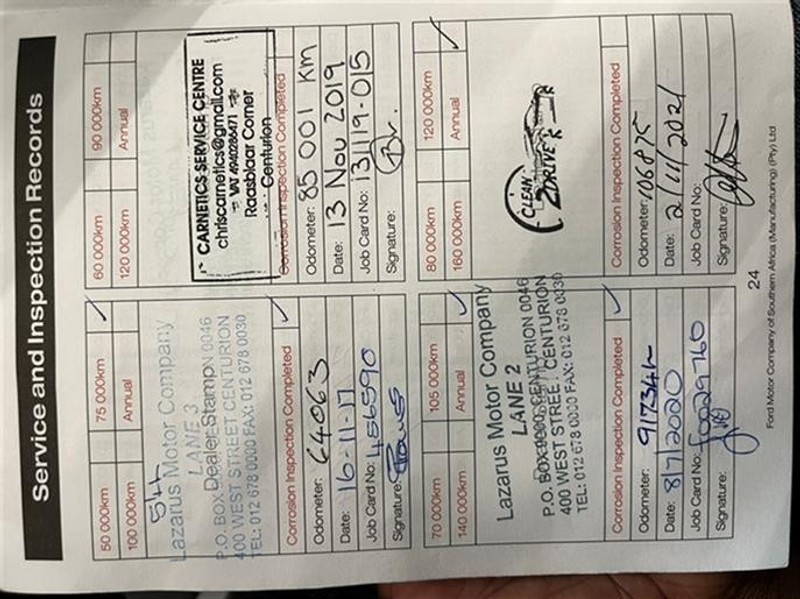 Service and Inspection Records
50 000km 75 000km
100 000km Annual
5th
Lazarus Motor Company
LANE 3
Dealer Stamp
P.O. BOX CENTURION 0046
400 WEST STREET CENTURION
TEL: 012 678 0000 FAX: 012 678 0030
Corrosion Inspection Completed
Odometer: 64063
Date: 16-11-17
Job Card No: 456590
Signature:
60 000km 90 000km
120 000km Annual
CARNETICS SERVICE CENTRE
chriscarnetics@gmail.com
VAT 4940286471
Raasblaar Corner
Centurion
Corrosion Inspection Completed
Odometer: 85 001 Km
Date: 13 Nov 2019
Job Card No: 131119-015
Signature:
70 000km 105 000km
140 000km Annual
Lazarus Motor Company
LANE 2
P.O. BOX CENTURION 0046
400 WEST STREET CENTURION
TEL: 012 678 0000 FAX: 012 678 0030
Corrosion Inspection Completed
Odometer:
Date: 8/7/2020
Job Card No: f0029760
Signature:
80 000km 120 000km
160 000km Annual
CLEAN
2DRIVE
Corrosion Inspection Completed
Odometer: 106875
Date: 2/11/2021
Job Card No:
Signature:
24
Ford Motor Company of Southern Africa (Manufacturing) (Pty) Ltd